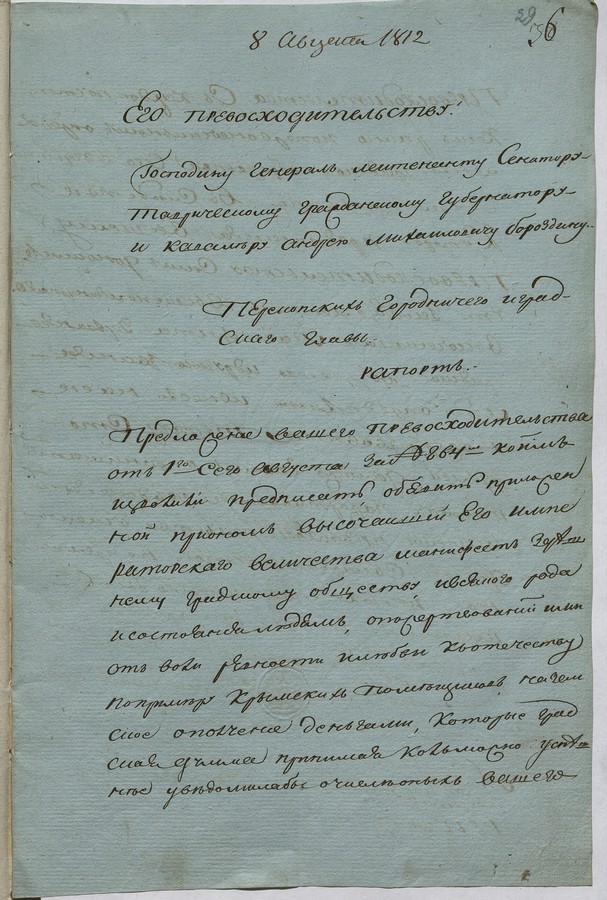 29 56
8 Августа 1812
Его превосходительству:
Господину генералъ лейтенанту Сенатору
Таврическому гражданскому губернатору
и кавалеру андрею михаиловичу бороздину.
Перекопскихъ Городничего иград-
скаго главы.
рапортъ.
Предложение вашего превосходительства
отъ 1го сего августа за № 2864мъ коимъ
предписать объявить приложен
ной приномъ высочайший Его импе
раторскаго величества манифестъ
нему градскому обществу ивсякого рода
исостояния людямъ, опожертвовании ими
отъ рѣвности илюбви къотечеству
попримѣру крымскихъ помѣщиковъ, назем
ское ополчение деньгами, которые град
ская дума принимая
увѣдомлалабы вашего